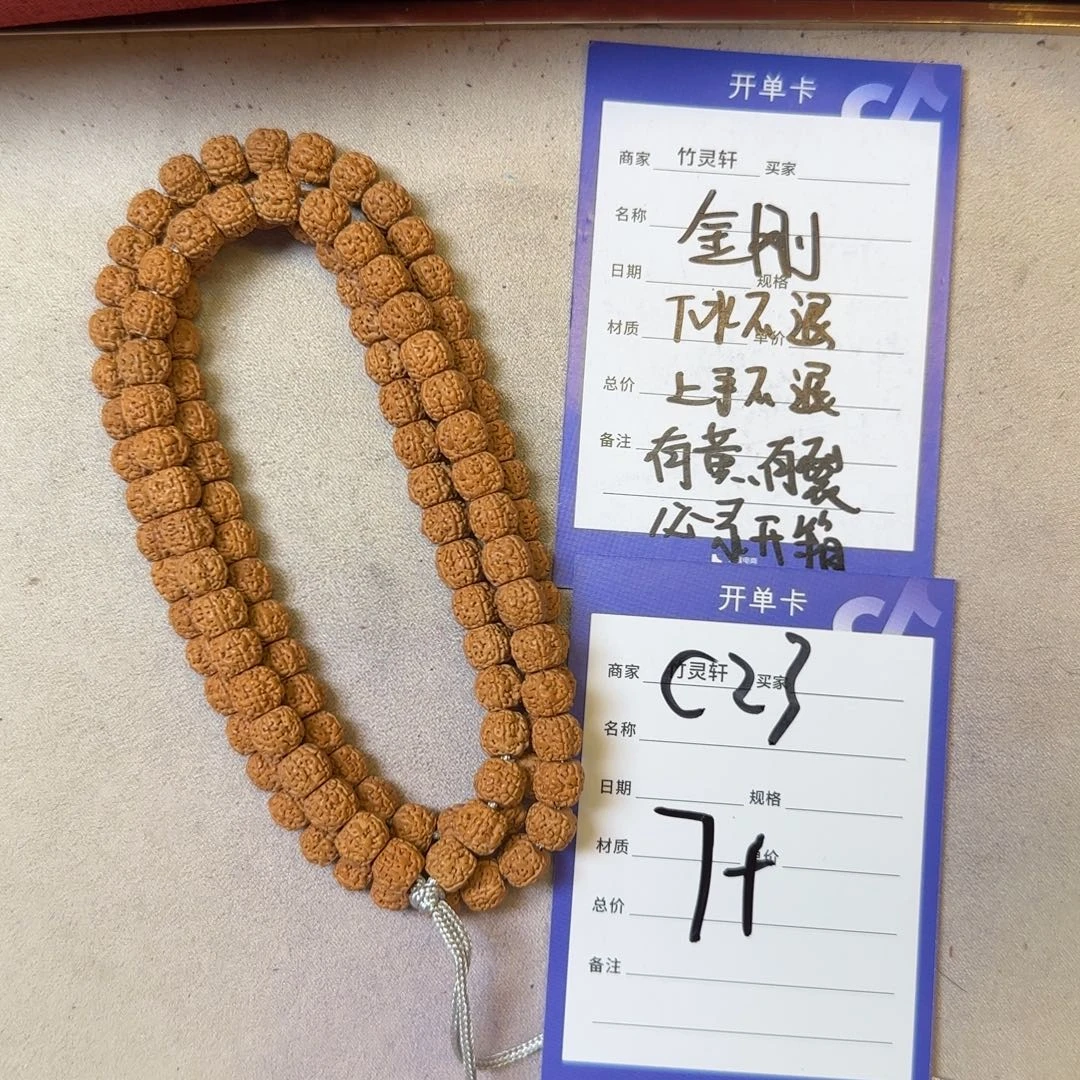 开单卡
商家 竹灵轩 买家
名称 金刚
日期 规格
下水不退
材质 单价
上手不退
总价
备注 有黄、有裂
必录开箱
电商
开单卡
商家 竹灵轩 买家
C23
名称
日期 规格
材质 单价
7t
总价
备注